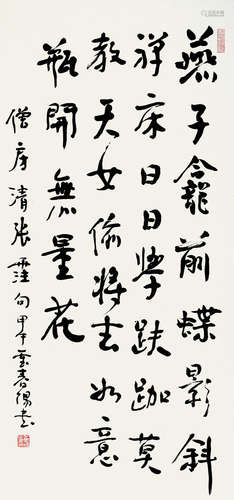 燕子龕前蝶影斜
禪床日日學趺跏莫
教天女偷將去如意
瓶開無量花
僧房清張霔句甲午春陽書